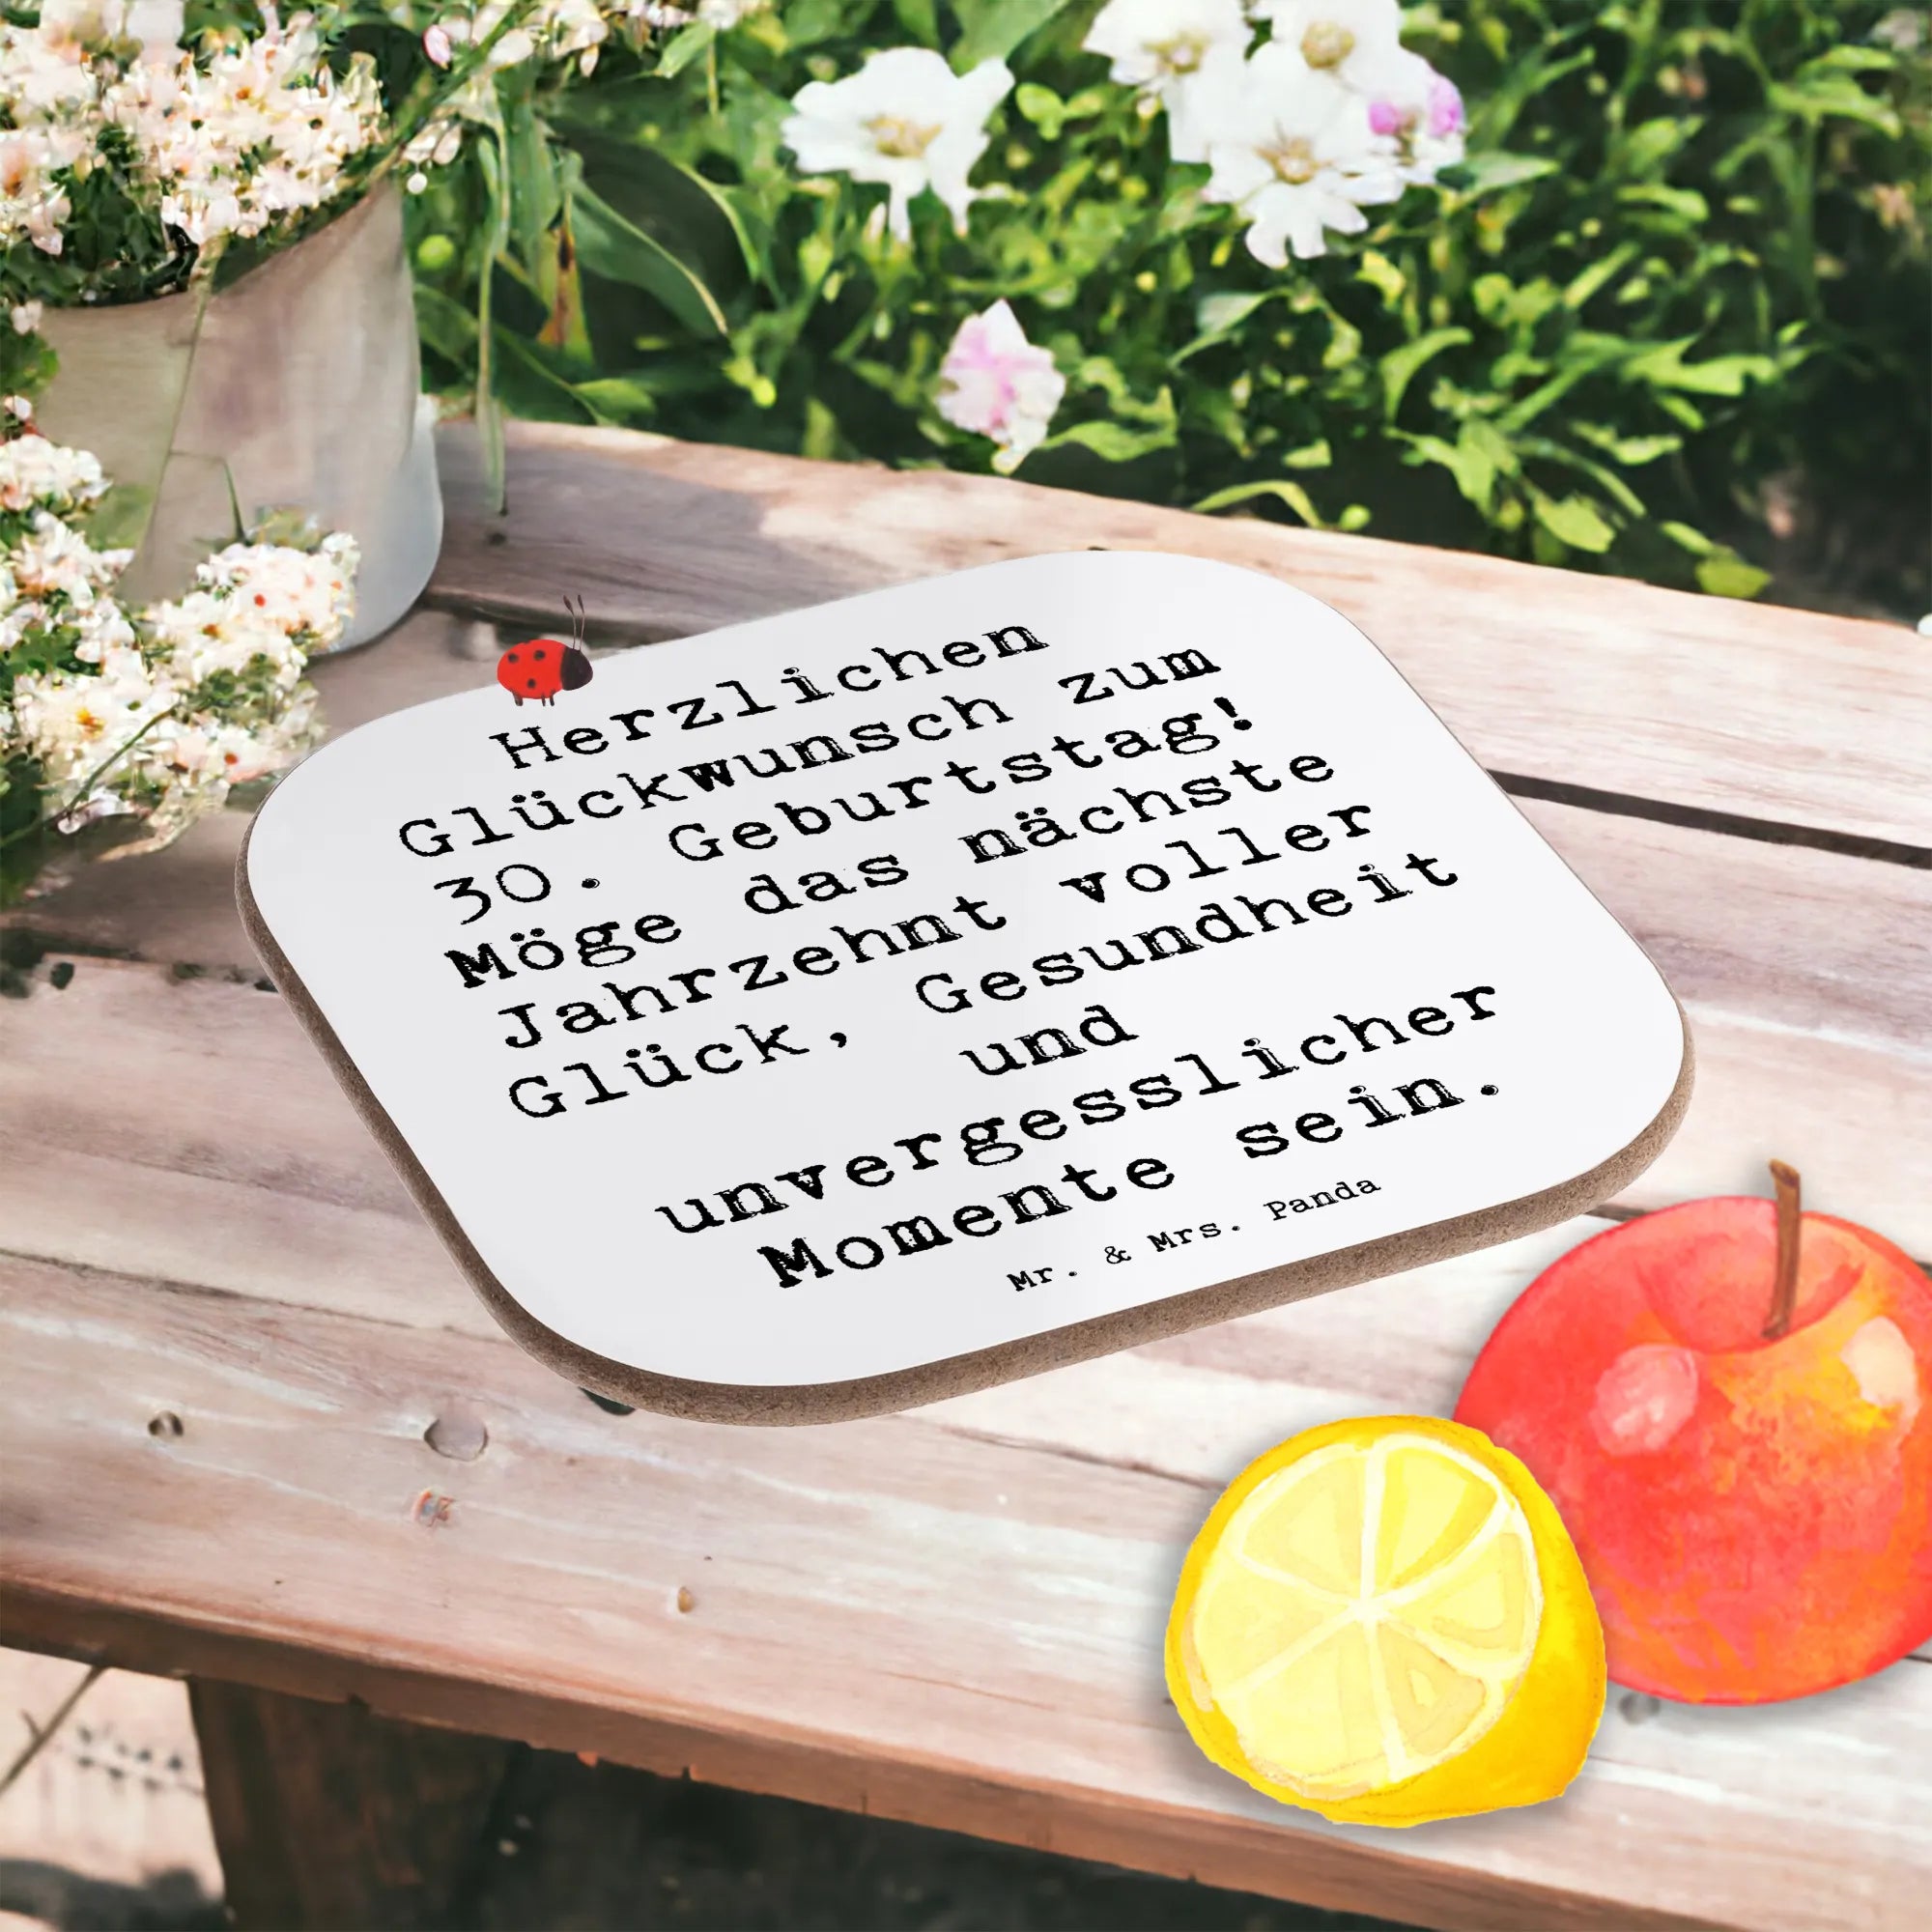 Herzlichen
Glückwunsch zum
30. Geburtstag!
Möge das nächste
Jahrzehnt voller
Glück, Gesundheit
und
unvergesslicher
Momente sein.
Mr. & Mrs. Panda